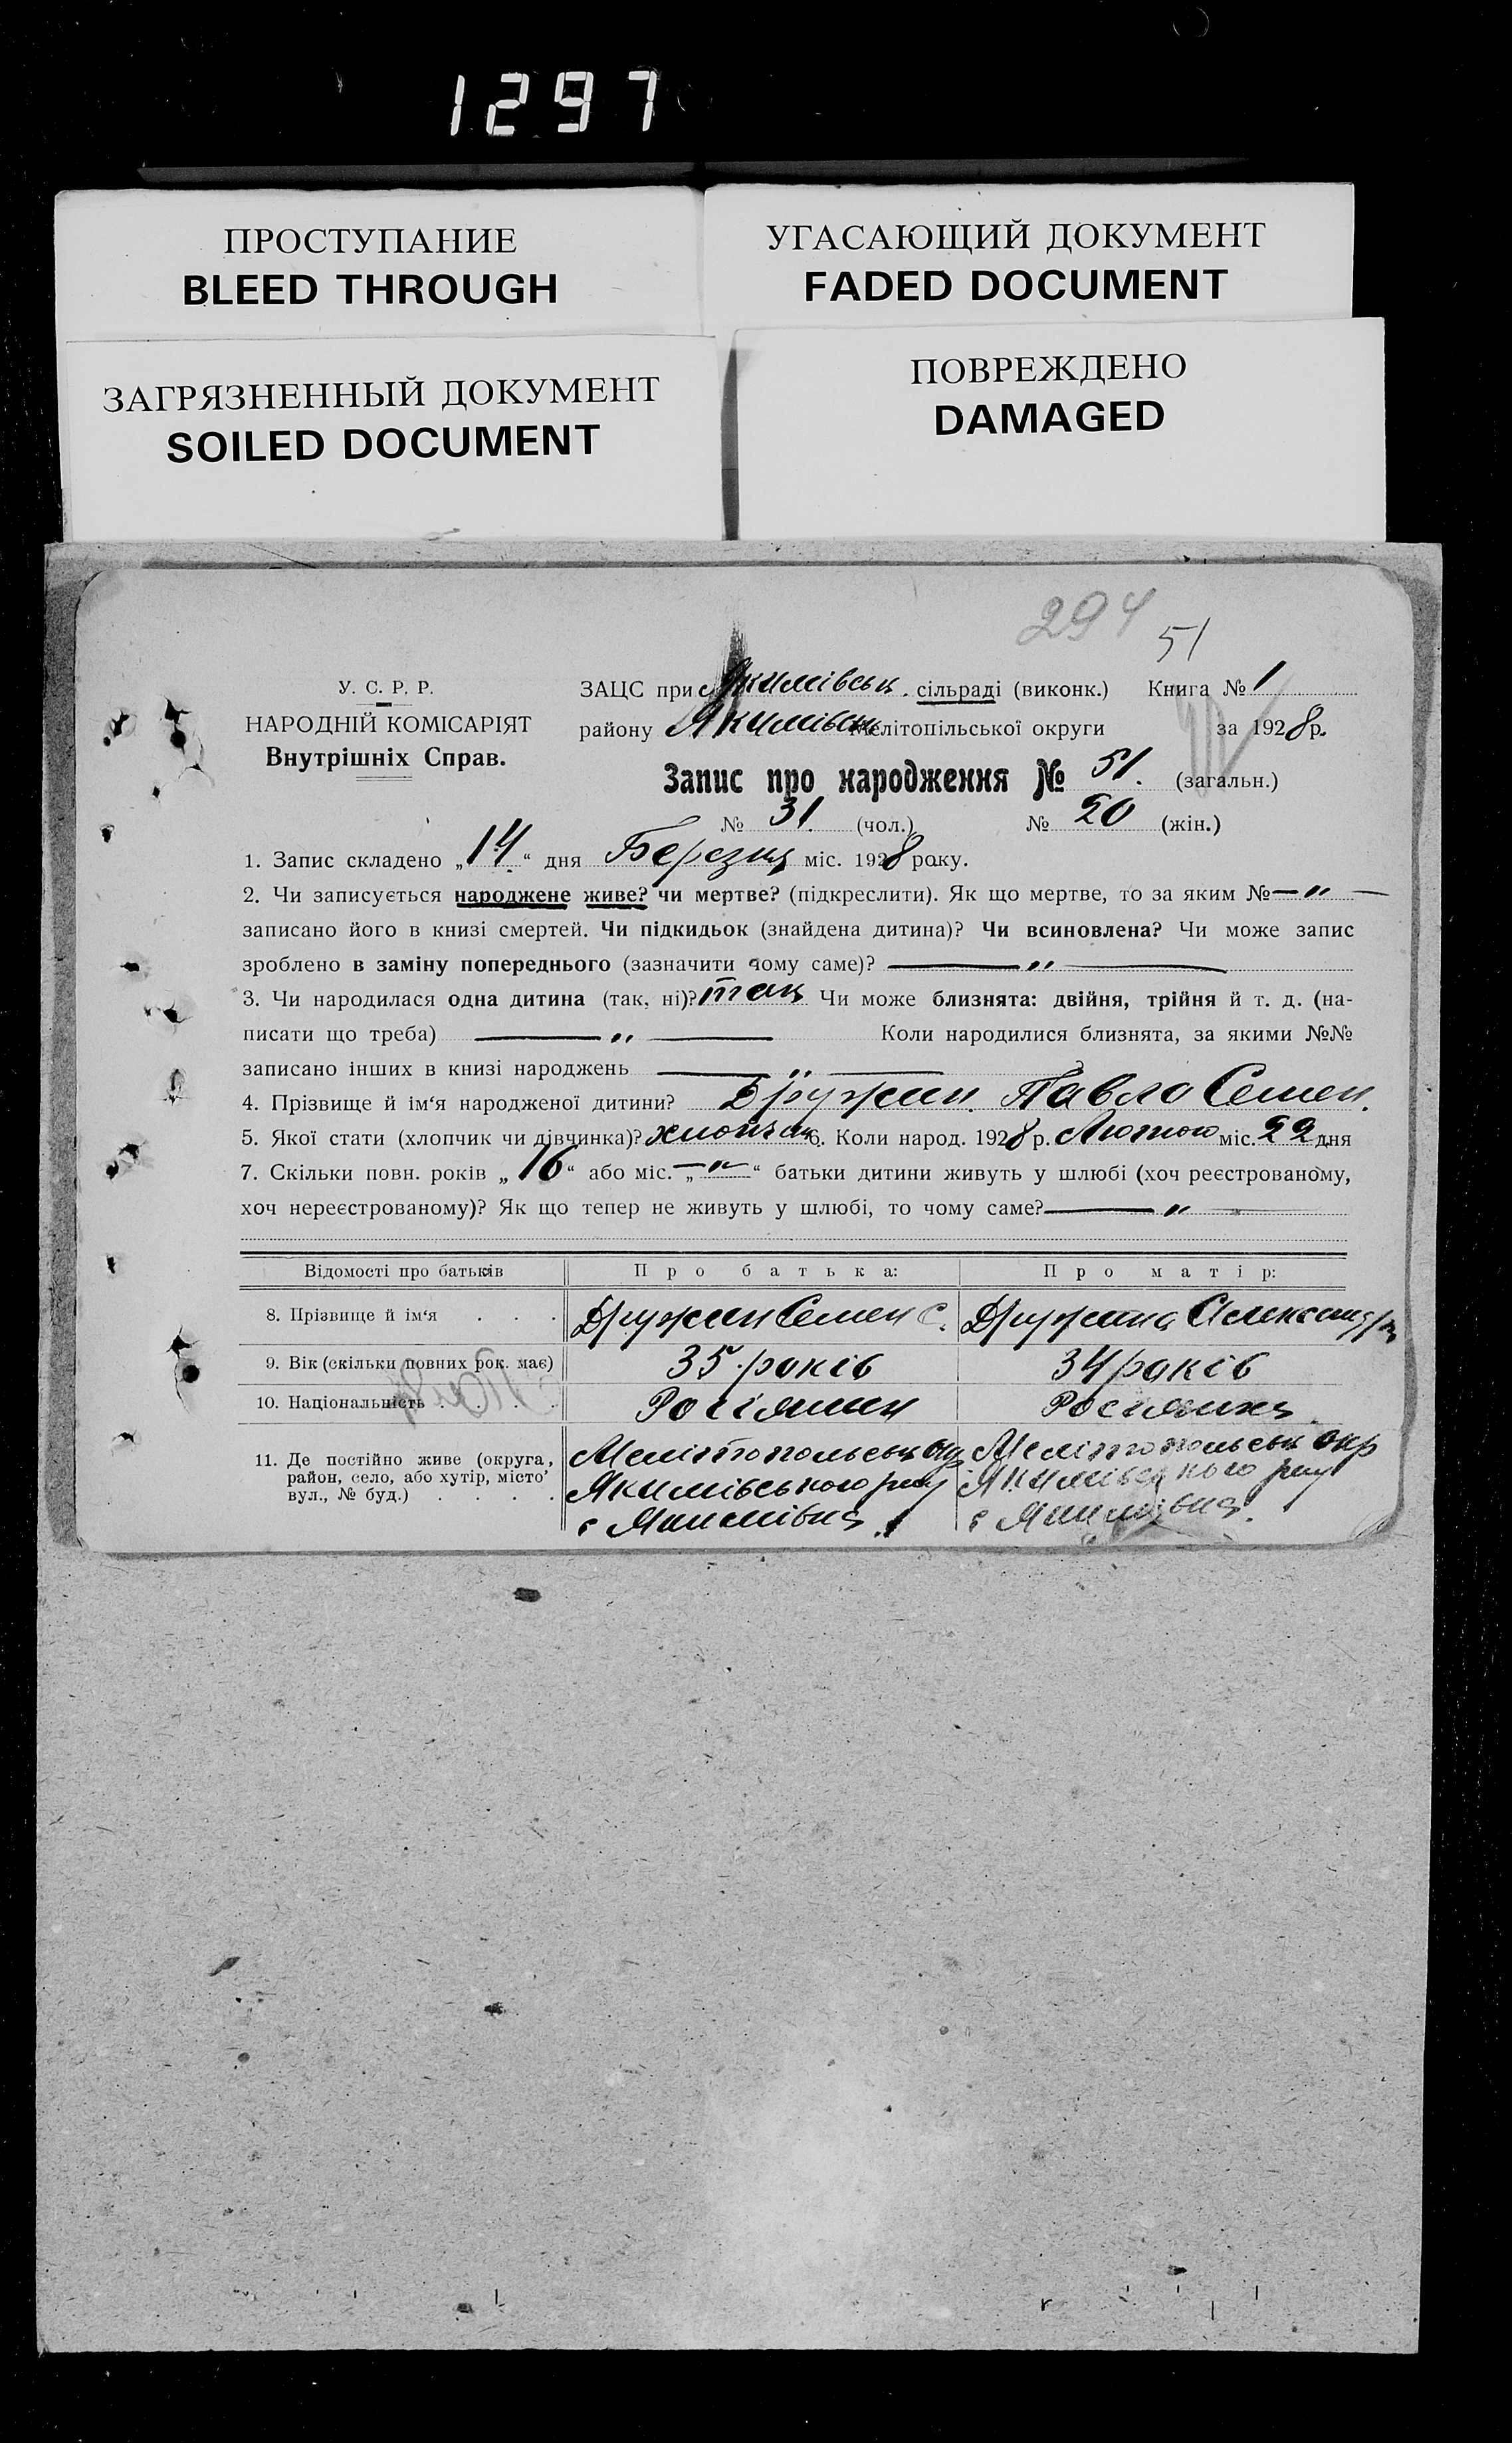 1297
ПРОСТУПАНИЕ
BLEED THROUGH
УГАСАЮЩИЙ ДОКУМЕНТ
FADED DOCUMENT
ЗАГРЯЗНЕННЫЙ ДОКУМЕНТ
SOILED DOCUMENT
ПОВРЕЖДЕНО
DAMAGED
294
51
У. С. Р. Р.
НАРОДНІЙ КОМІСАРІЯТ
Внутрішніх Справ.
ЗАЦС при Якимівськ. сільраді (виконк.) Книга № 1
району Якимівськ Мелітопільської округи за 1928 р.
Запис про народження № 51. (загальн.)
№ 31. (чол.) № 20 (жін.)
1. Запис складено „14“ дня Березня міс. 1928 року.
2. Чи записується народжене живе? чи мертве? (підкреслити). Як що мертве, то за яким № — „ —
записано його в книзі смертей. Чи підкидьок (знайдена дитина)? Чи всиновлена? Чи може запис
зроблено в заміну попереднього (зазначити чому саме)? — „ —
3. Чи народилася одна дитина (так, ні)? так Чи може близнята: двійня, трійня й т. д. (на-
писати що треба) — „ — Коли народилися близнята, за якими №№
записано інших в книзі народжень — „ —
4. Прізвище й ім‘я народженої дитини? Дружин. Павло Семен.
5. Якої стати (хлопчик чи дівчинка)? хлопчик 6. Коли народ. 1928 р. Лютого міс. 22 дня
7. Скільки повн. років „16“ або міс. „—„—“ батьки дитини живуть у шлюбі (хоч реєстрованому,
хоч нереєстрованому)? Як що тепер не живуть у шлюбі, то чому саме? — „ —
Відомості про батьків Про батька: Про матір:
8. Прізвище й ім‘я . . . Дружин Семен С. Дружина Александра
9. Вік (скільки повних рок. має) 35 років 34 років
10. Національність . . . . Росіянин Росиянка
11. Де постійно живе (округа, Мелітопольськ окр Мелітопольськ окр
район, село, або хутір, місто’ Якимівського рну Якимівського рну
вул., № буд.) . . . . с Якимівка. с Якимівка.